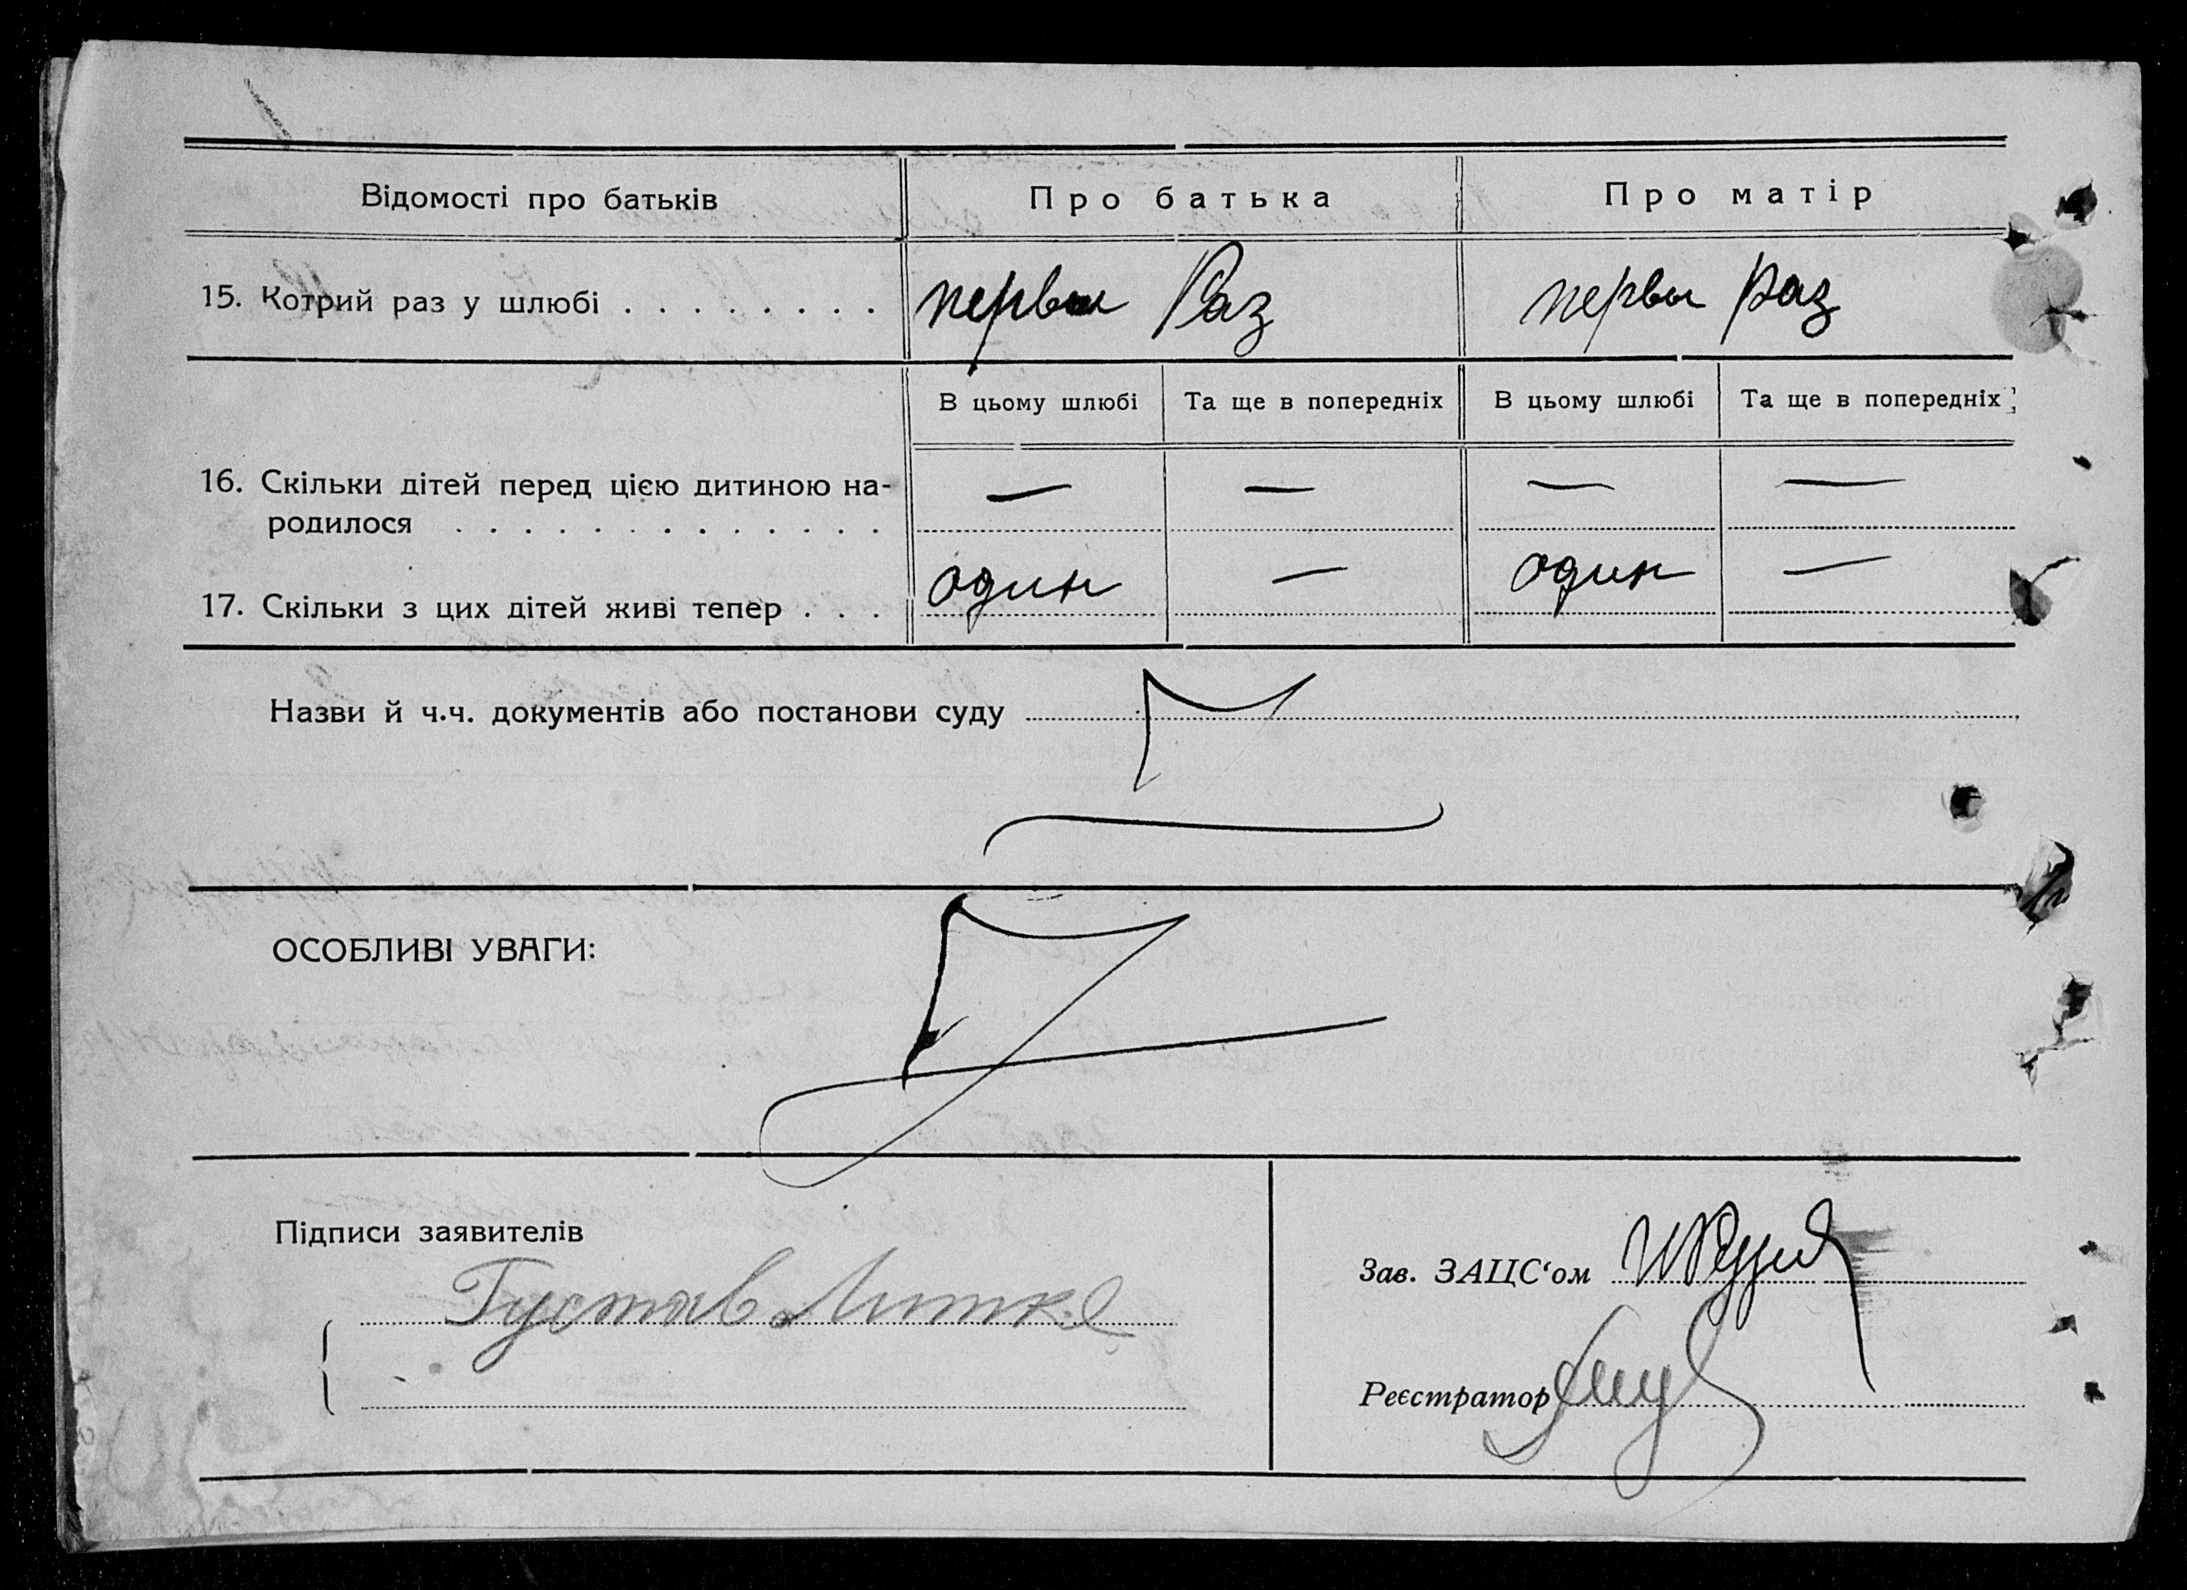 Відомості про батьків Про батька Про матір
15. Котрий раз у шлюбі . . . . . . . . первы Раз первы раз
В цьому шлюбі Та ще в попередніх В цьому шлюбі Та ще в попередніх
16. Скільки дітей перед цією дитиною на- — — — —
родилося . . . . . . . . . . . . .
17. Скільки з цих дітей живі тепер . . . один — один —
Назви й ч.ч. документів або постанови суду
ОСОБЛИВІ УВАГИ:
Підписи заявителів
Густав Литке
Зав. ЗАЦС‘ом
Реєстратор